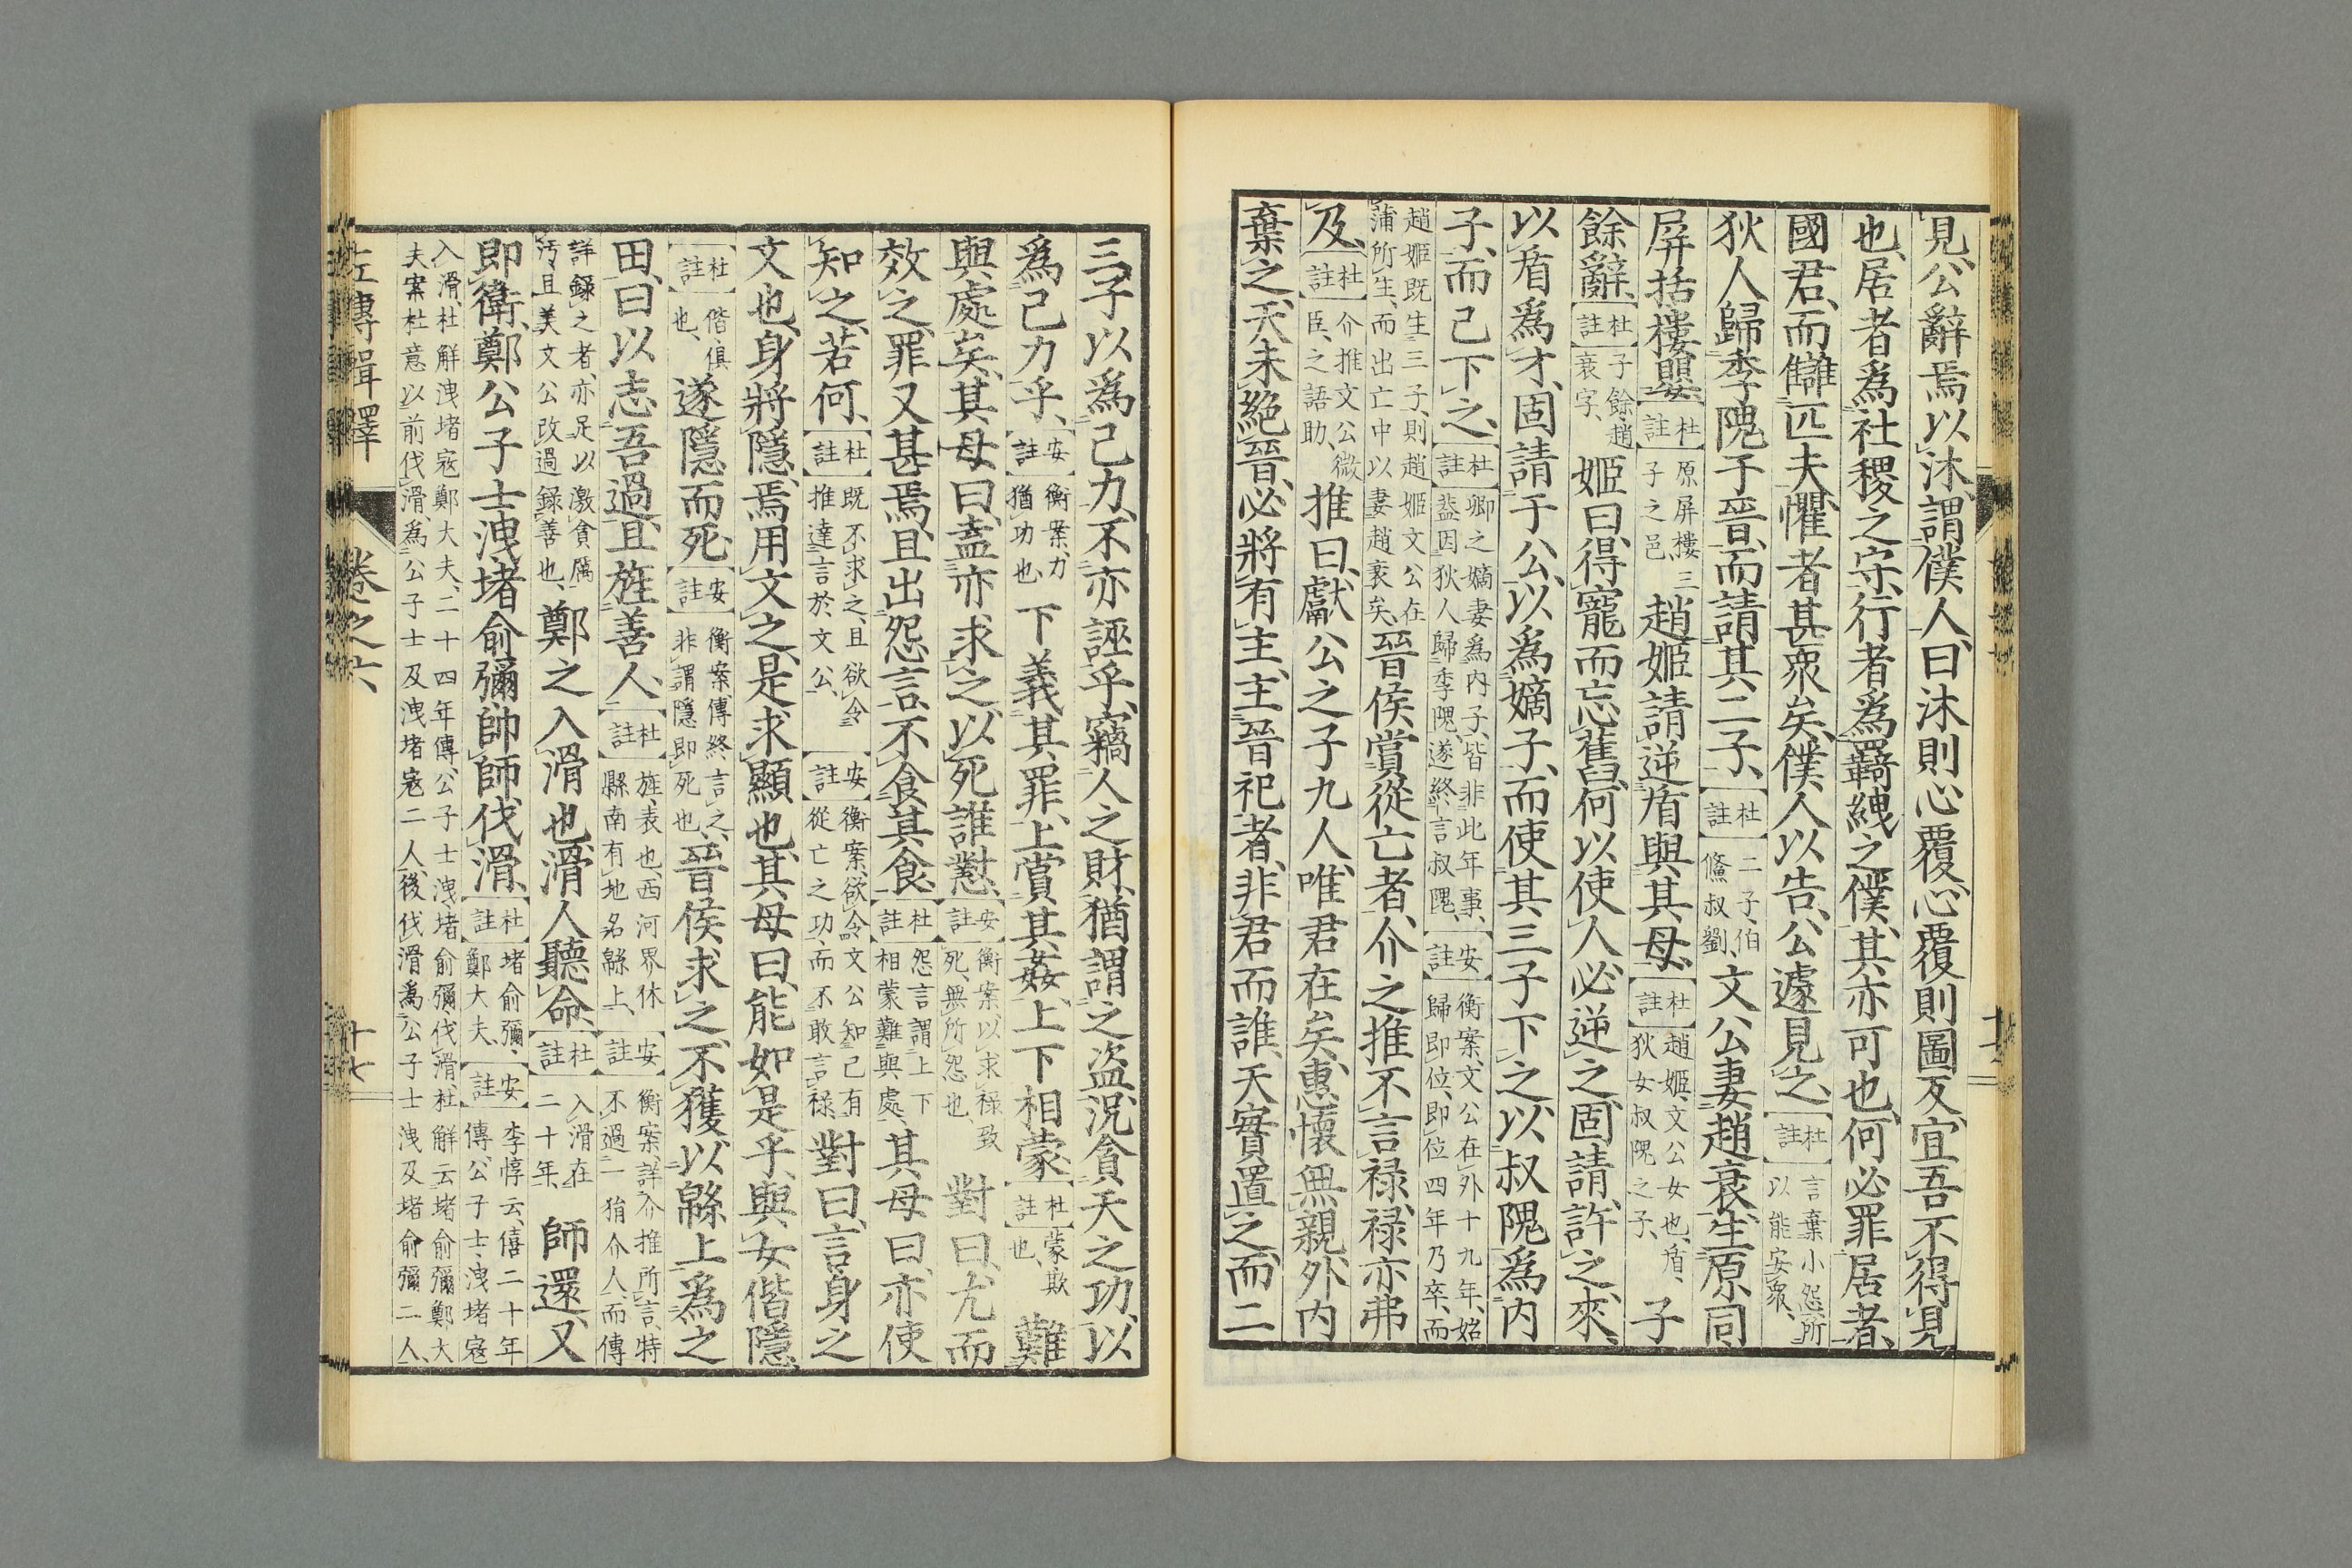 見、公辭焉以沐、謂僕人曰沐則心覆、心覆則圖反、宜吾不得見
也、居者爲社稷之守、行者爲羇絏之僕、其亦可也、何必罪居者、
國君而讎匹夫、懼者甚衆矣、僕人以告、公遽見之、杜註言棄小怨所以能安衆、
狄人歸季隗于晉、而請其二子、杜註二子、伯儵叔劉、文公妻趙衰、生原同
屏括樓嬰、杜註原屏樓、三子之邑、趙姬請逆盾與其母、杜註趙姬、文公女也、盾、狄女叔隗之子、子
餘辭、杜註子餘、趙衰字、姬曰、得寵而忘舊、何以使人、必逆之、固請、許之、來、
以盾爲才、固請于公、以爲嫡子、而使其三子下之、以叔隗爲內
子、而己下之、杜註卿之嫡妻爲內子、皆非此年事、蓋因狄人歸季隗、遂終言叔隗、安註衡案、文公在外十九年、始歸卽位、卽位四年乃卒、而
趙姬旣生三子、則趙姬文公在蒲所生、而出亡中以妻趙衰矣、晉侯賞從亡者、介之推不言祿、祿亦弗
及、杜註介推文公微臣、之語助、推曰、獻公之子九人、唯君在矣、惠懷無親、外內
棄之、天未絕晉、必將有主、主晉祀者、非君而誰、天實置之、而二
三子以爲己力、不亦誣乎、竊人之財、猶謂之盜、況貪天之功、以
爲己力乎、安註衡案、力猶功也、下義其罪、上賞其姦、上下相蒙、杜註蒙、欺也、難
與處矣、其母曰、盍亦求之、以死誰懟、安註衡案、以求祿致死、無所怨也、對曰、尤而
效之、罪又甚焉、且出怨言、不食其食、杜註怨言謂上下相蒙難與處、其母曰、亦使
知之若何、杜註旣不求之、且欲令推達言於文公、安註衡案、欲令文公知己有從亡之功、而不敢言祿、對曰、言、身之
文也、身將隱、焉用文之、是求顯也、其母曰、能如是乎、與女偕隱、
杜註偕、俱也、遂隱而死、安註衡案、傳終言之、非謂隱卽死也、晉侯求之、不獲、以緜上爲之
田、曰以志吾過、且旌善人、杜註旌、表也、西河界休縣南有地名緜上、安註衡案、詳介推所言、特不過一狷介人、而傳
詳錄之者、亦足以激貪厲汚、且美文公改過錄善也、鄭之入滑也、滑人聽命、杜註入滑在二十年、師還、又
卽衛、鄭公子士洩堵俞彌帥師伐滑、杜註堵俞彌、鄭大夫、安註李惇云、僖二十年傳、公子士洩堵寇
入滑、杜解洩堵寇鄭大夫、二十四年傳、公子士洩堵俞彌伐滑、杜解云堵俞彌鄭大
夫、案杜意以前伐滑、爲公子士及洩堵寇二人、後伐滑爲公子士洩及堵俞彌二人、
左傳輯釋 卷之六、 十七